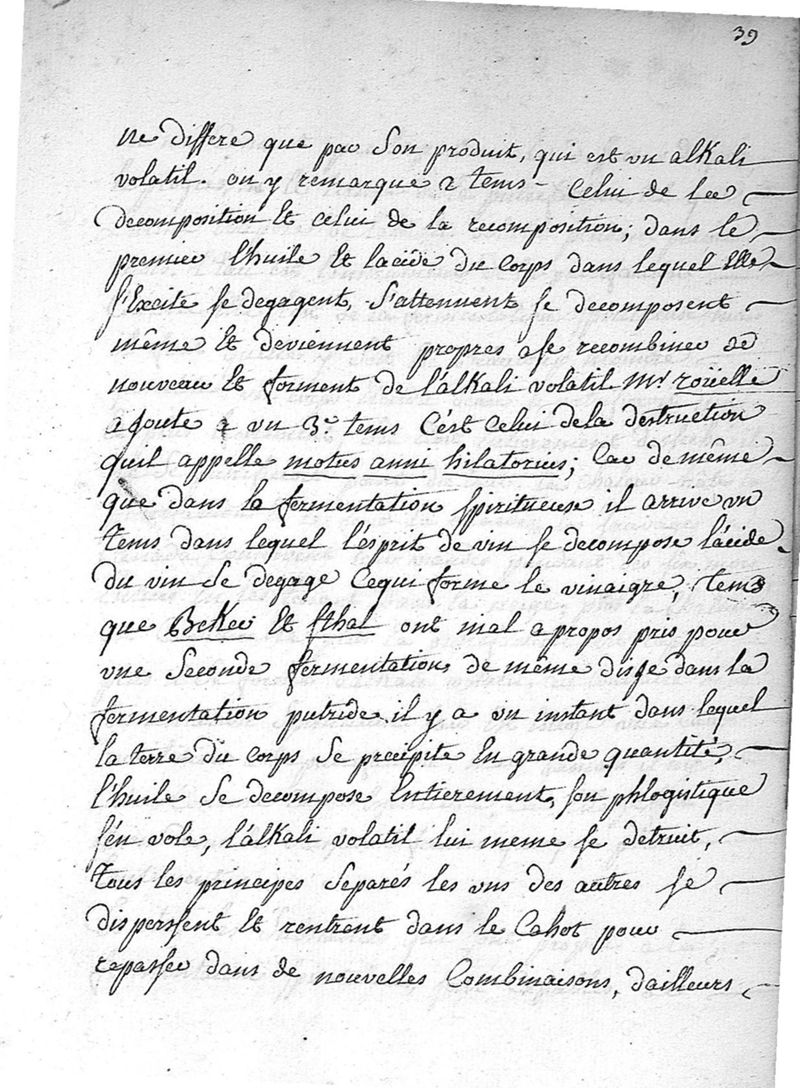 39
ne differe que par son produit, qui est un alkali
volatil. on y remarque 2 tems - celui de la
decomposition et celui de la recomposition; dans le
premier l'huile et lacide du corps dans lequel elle
s'excite se degagent, s'attenuent se decomposent
même et deviennent propres a se recombiner de
nouveau et forment de l'alkali volatil Mr. roüelle
ajoute a un 3e. tems c'est celui dela destruction
quil appelle motus anni hilatorius; car de même
que dans la fermentation spiritueuse il arrive un
tems dans lequel l'esprit de vin se decompose l'acide
du vin se degage cequi forme le vinaigre, tems
que Beker et sthal ont mal a propos pris pour
une seconde fermentation, de même disje dans la
fermentation putride il y a un instant dans lequel
la terre du corps se precipite en grande quantité,
l'huile se decompose entierement, son phlogistique
s'en vole, l'alkali volatil lui meme se detruit,
tous les principes separés les uns des autres se
disperssent et rentrent dans le Cahot pour
repasser dans de nouvelles Combinaisons, dailleurs